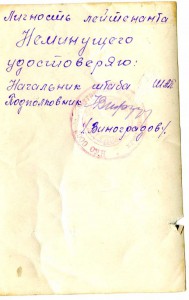 Личность лейтенанта
Неминущего
удостоверяю:
Начальник штаба
Подполковник
/Виноградов/.